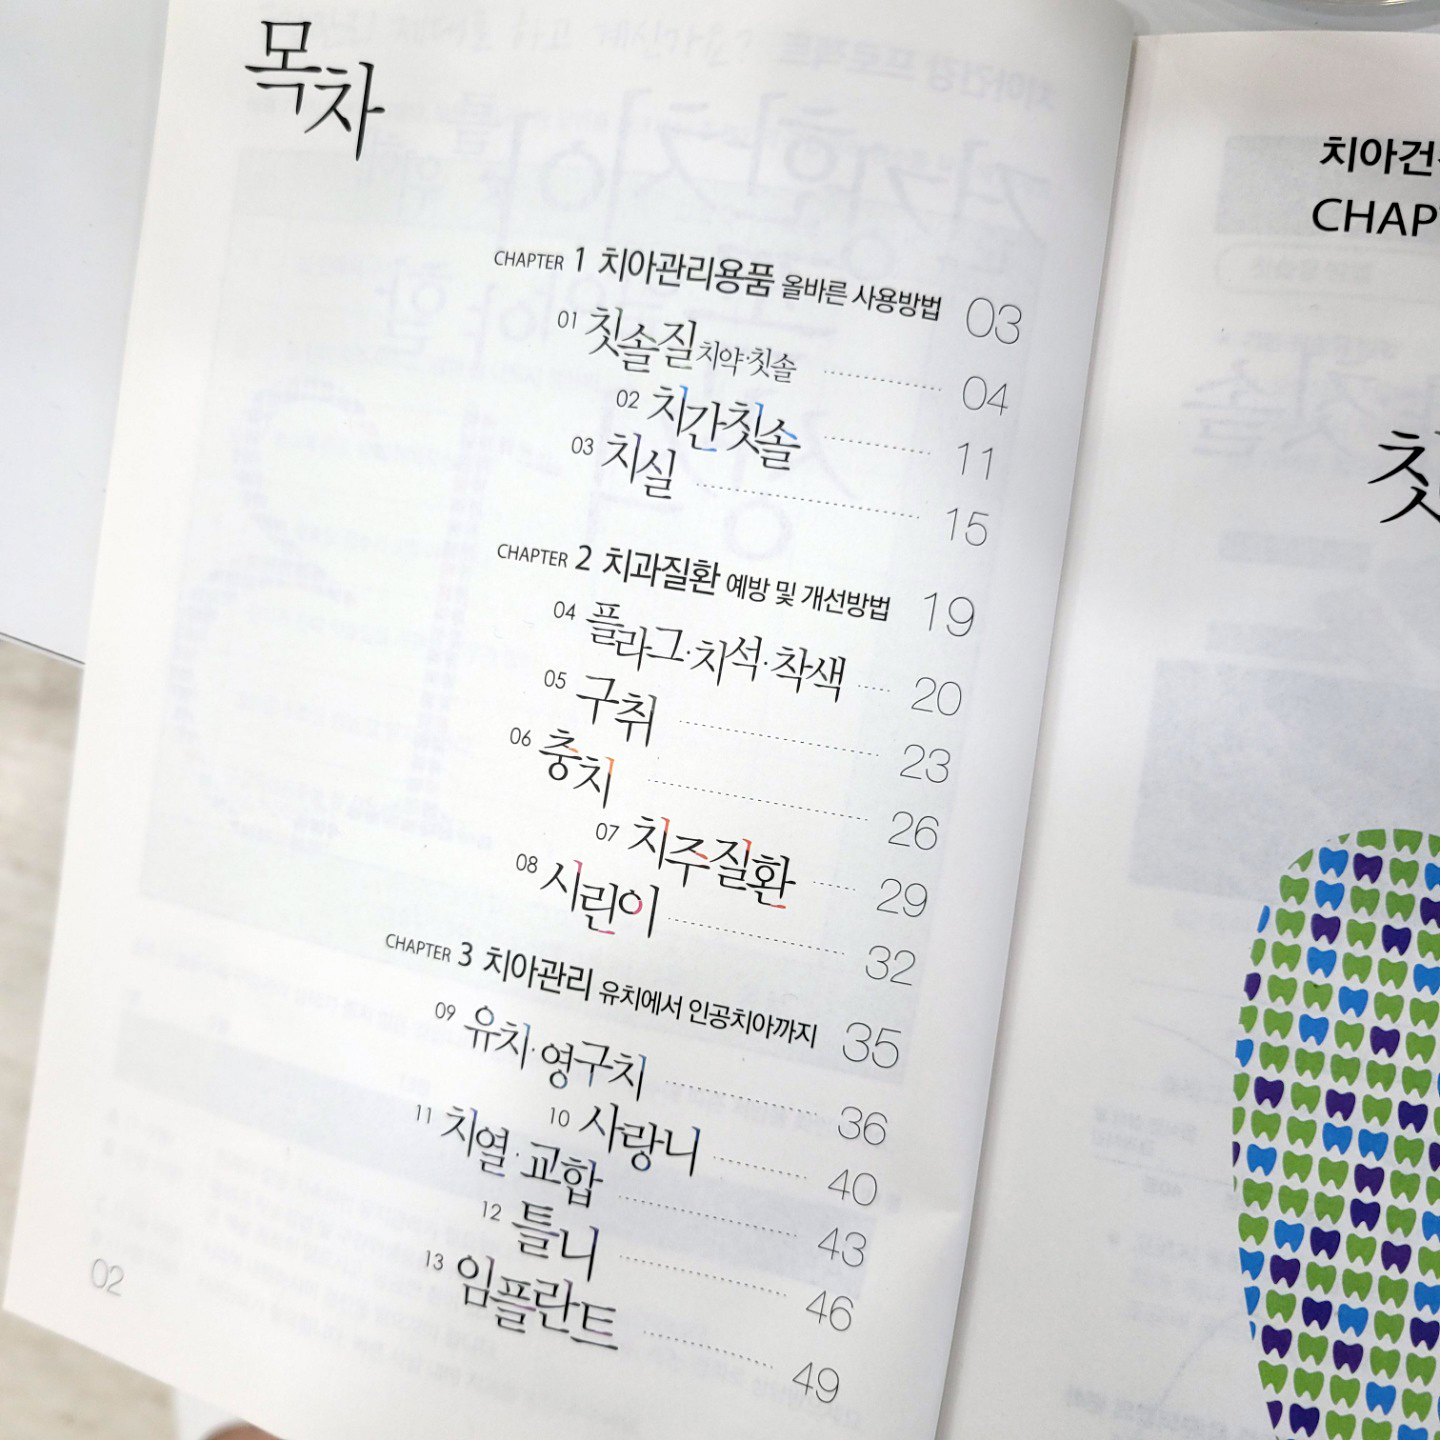 목차
CHAPTER 1 치아관리용품 올바른 사용방법 03
01 칫솔질 치약·칫솔 04
02 치간칫솔 11
03 치실 15
CHAPTER 2 치과질환 예방 및 개선방법 19
04 플라그·치석·착색 20
05 구취 23
06 충치 26
07 치주질환 29
08 시린이 32
CHAPTER 3 치아관리 유치에서 인공치아까지 35
09 유치·영구치 36
10 사랑니 40
11 치열·교합 43
12 틀니 46
13 임플란트 49
02
치아건
CHAP